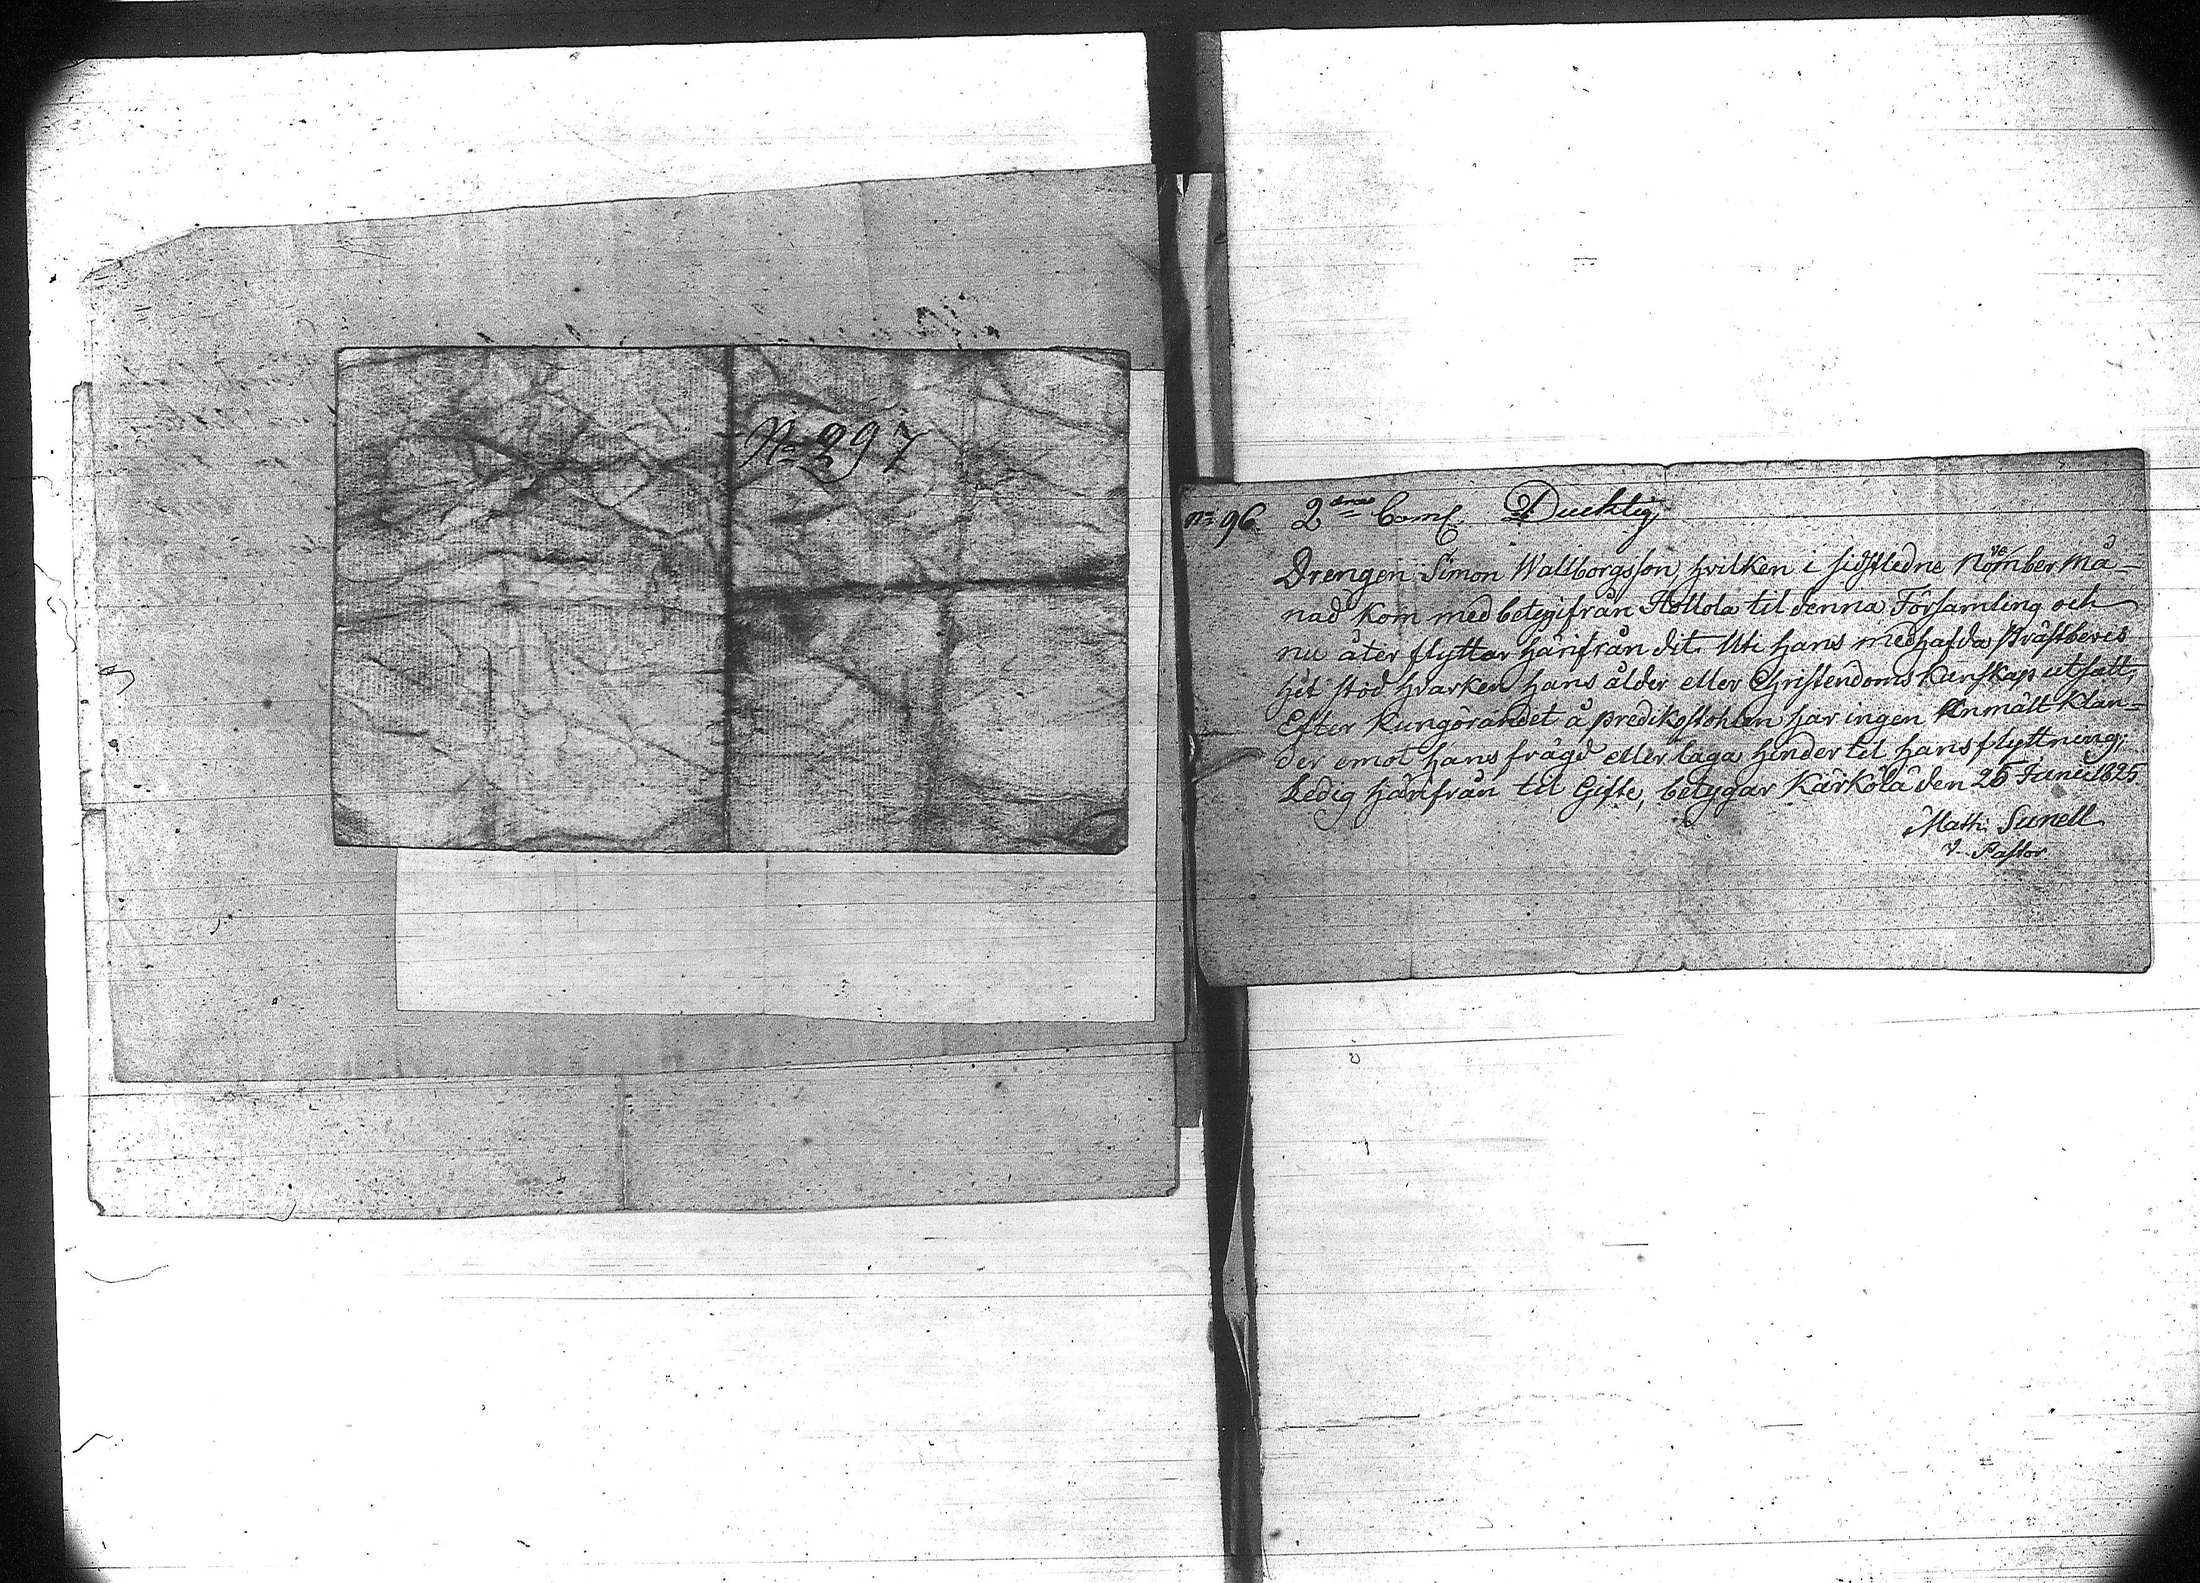 No 297
no 96. 2dra Comp. Ducktig
Drengen Simon Walborgsson hvilken i sistledne November Må-
nad kom med betyg ifrån Hollola til denna Församling och
nu åter flyttar härifrån dit. Uti hans medhafda Prästbevis
hit stod hvarken hans ålder eller Christendoms Kunskap utsatt;
Efter Kungörandet å predikostohlen har ingen Anmält Klan-
der emot hans frägd eller laga hinder til hans flyttning;
Ledig härifrån til Gifte, betygar Kärkölä den 25 Junii 1825.
Math: Sunell
v. Pastor